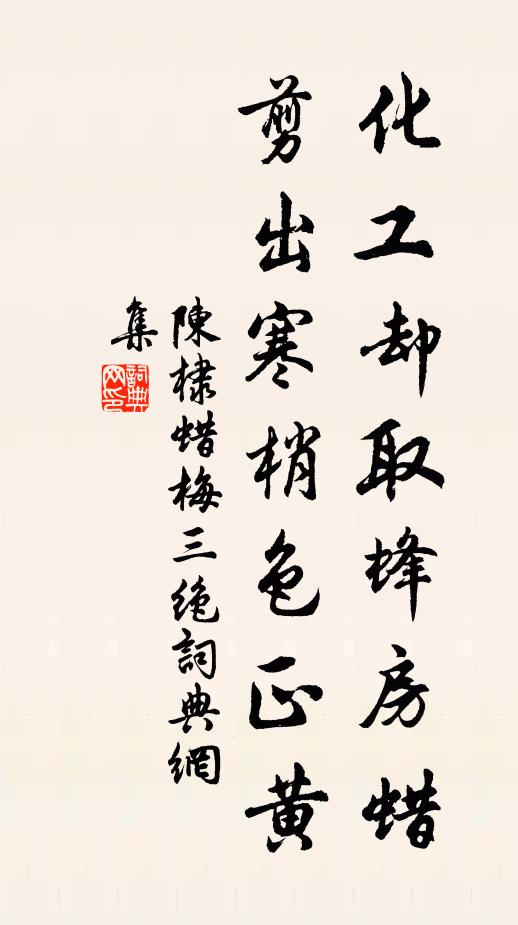 化工却取蜂房蜡
剪出寒梢色正黄
陳棣蜡梅三绝詞典網
集
詞典
网印